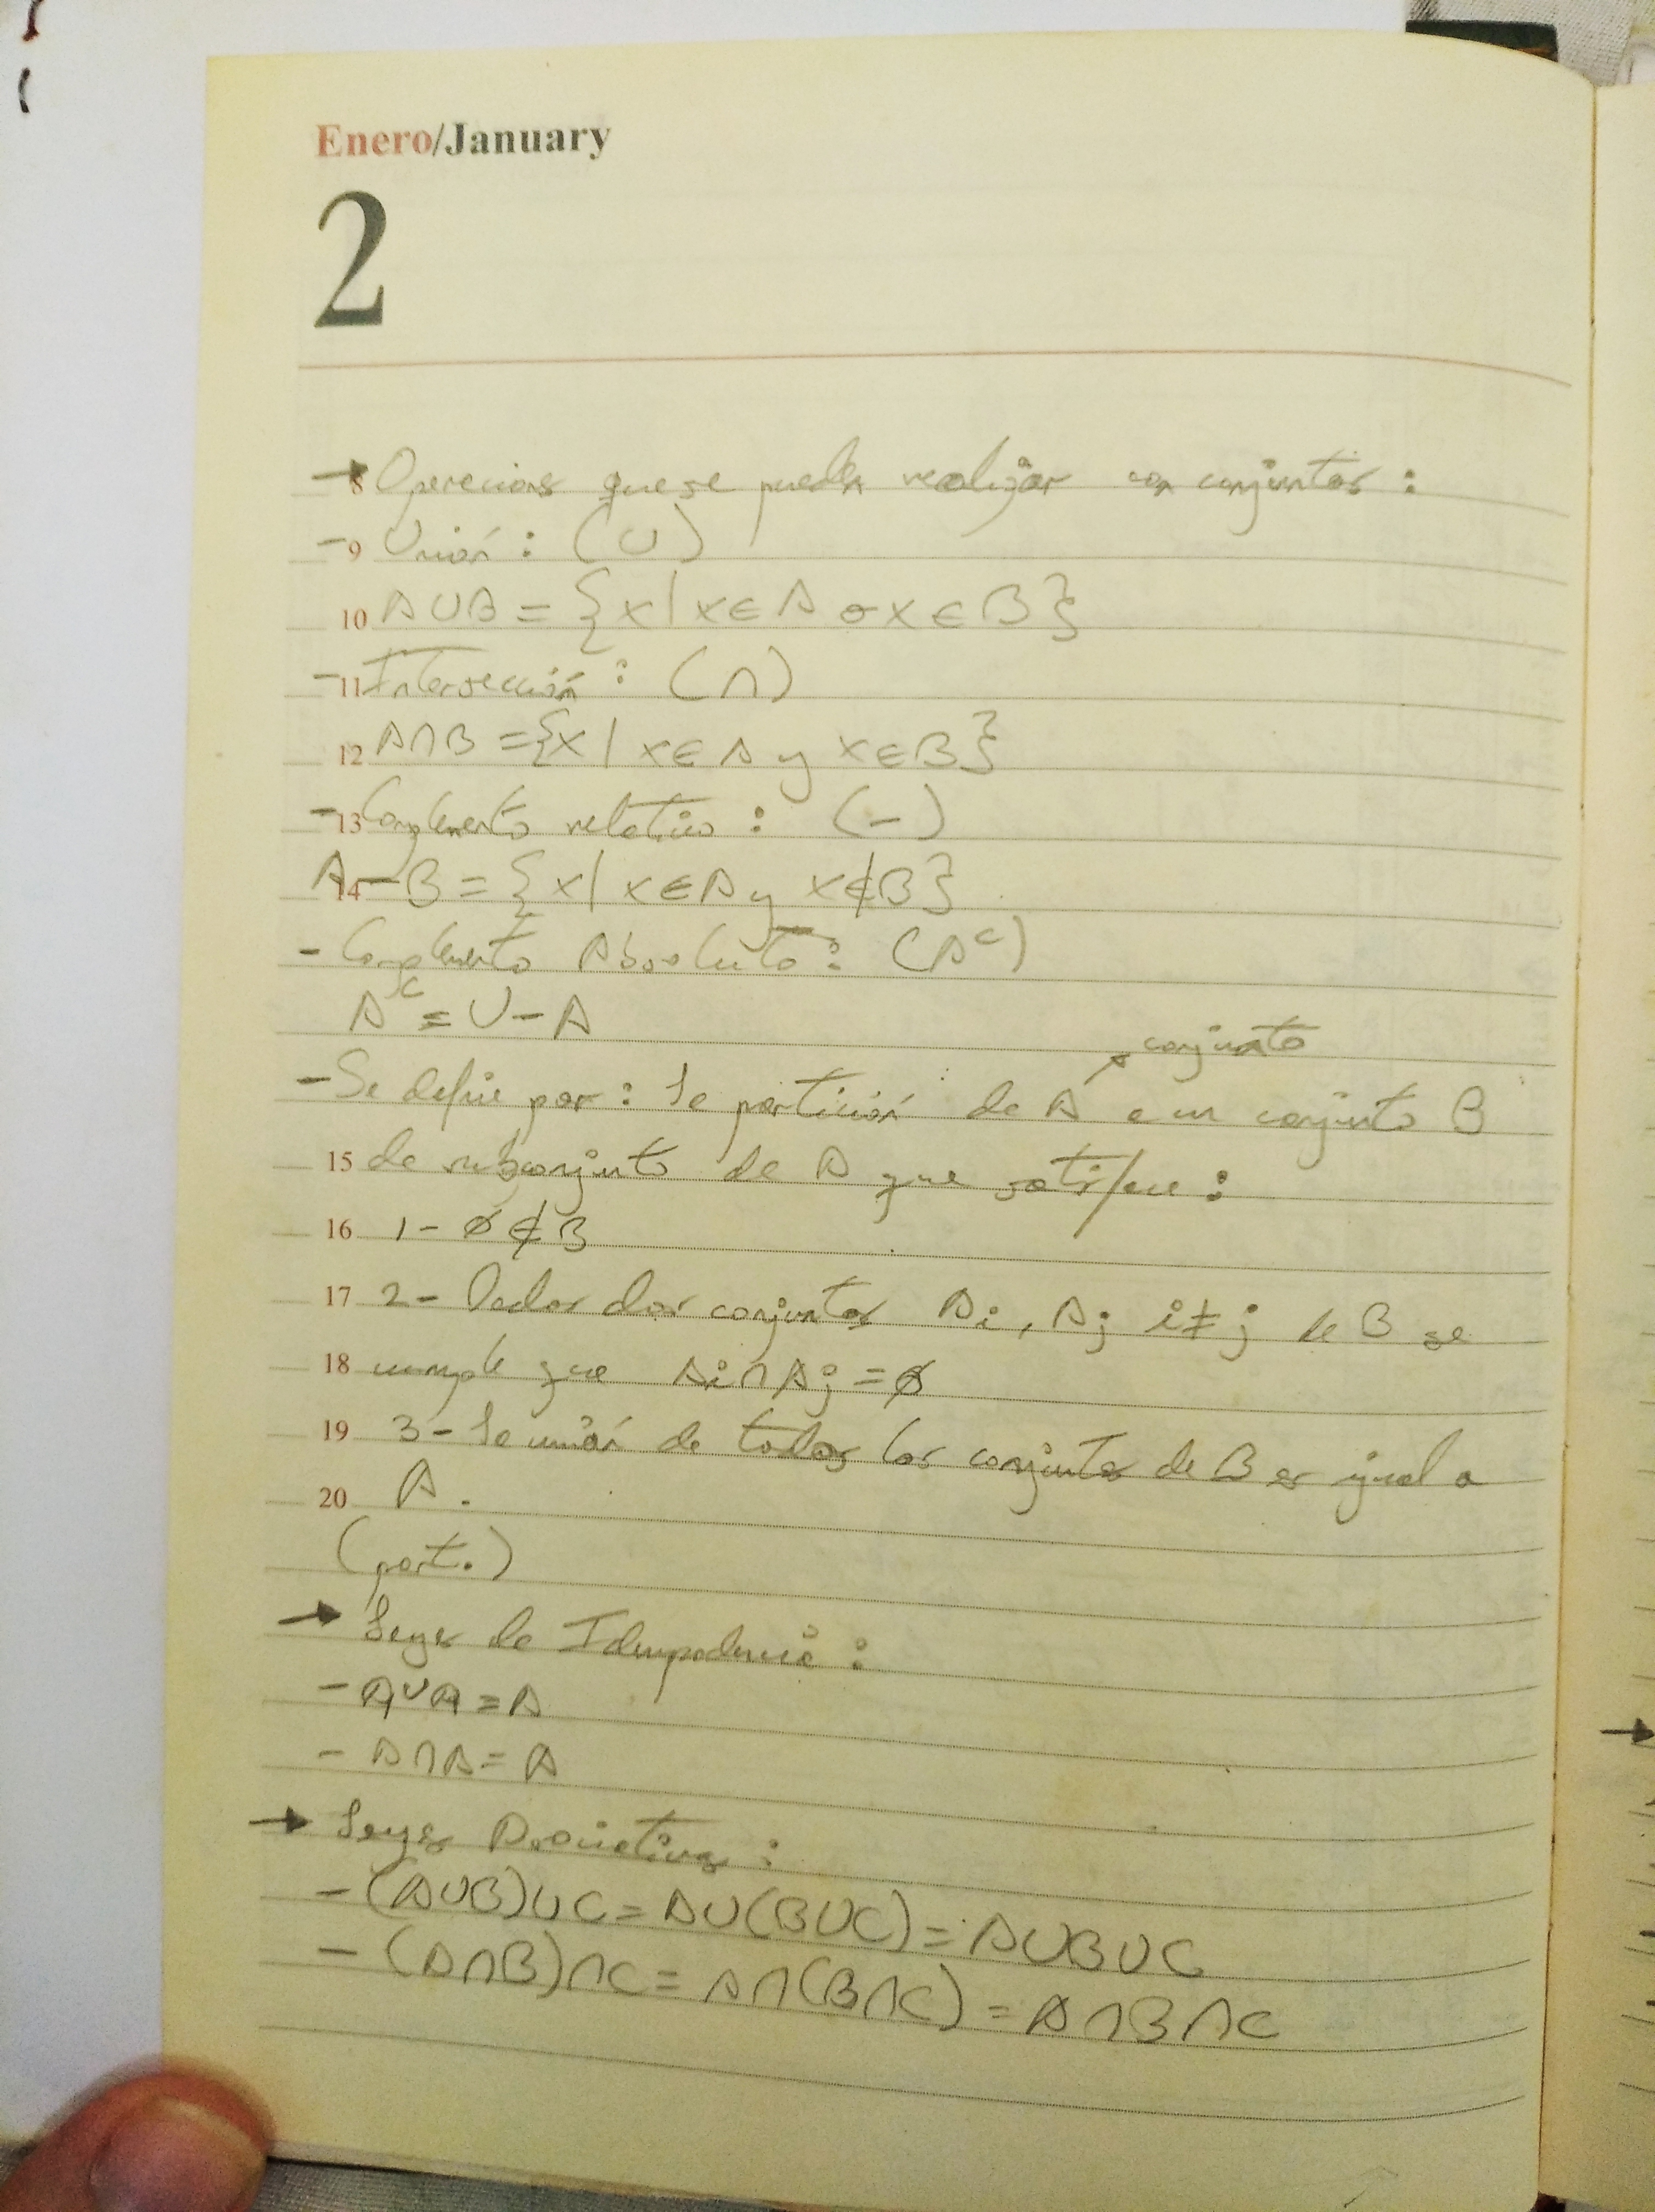 Enero/January
2
→ 8 Operecions que se pueden realizar con conjuntos :
- 9 Unión : (∪)
10 A∪B = {x | x∈A o x∈B}
- 11 Intersección : (∩)
12 A∩B = {x | x∈A y x∈B}
- 13 Complemento reletivo : (-)
14 A-B = {x | x∈A y x∉B}
- Complemento Absoluto : (Aᶜ)
Aᶜ = U-A
conjunto
- Se define por : la partición de A a un conjunto B
15 de subconjunto de A que satisface :
16 1- ∅∉B
17 2- Dados dos conjuntos Ai, Aj i≠j de B se
18 cumple que Ai∩Aj = ∅
19 3- La unión de todos los conjuntos de B es igual a
20 A.
(part.)
→ Leyes de Idempodencia :
- A∪A = A
- A∩A = A
→ Leyes Asociativas :
- (A∪B)∪C = A∪(B∪C) = A∪B∪C
- (A∩B)∩C = A∩(B∩C) = A∩B∩C